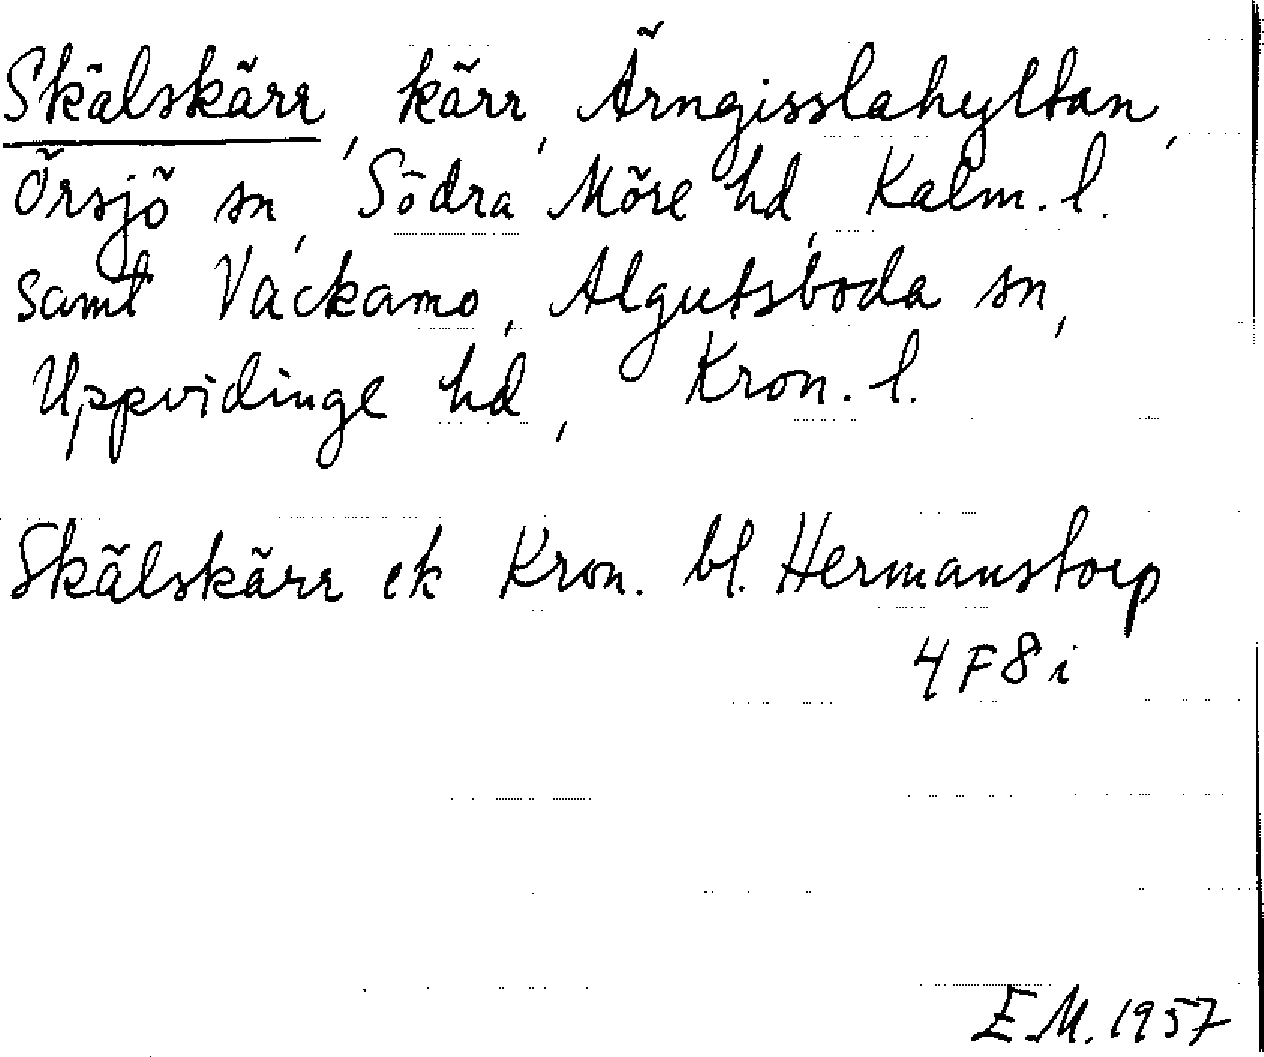 Skälskärr, kärr, Ärngisslahyltan,
Örsjö sn, Södra Möre hd, Kalm. l.
samt Vackamo, Algutsboda sn,
Uppvidinge hd, Kron. l.
Skälskärr ek Kron. bl. Hermanstorp
4F8i
E.M. 1957